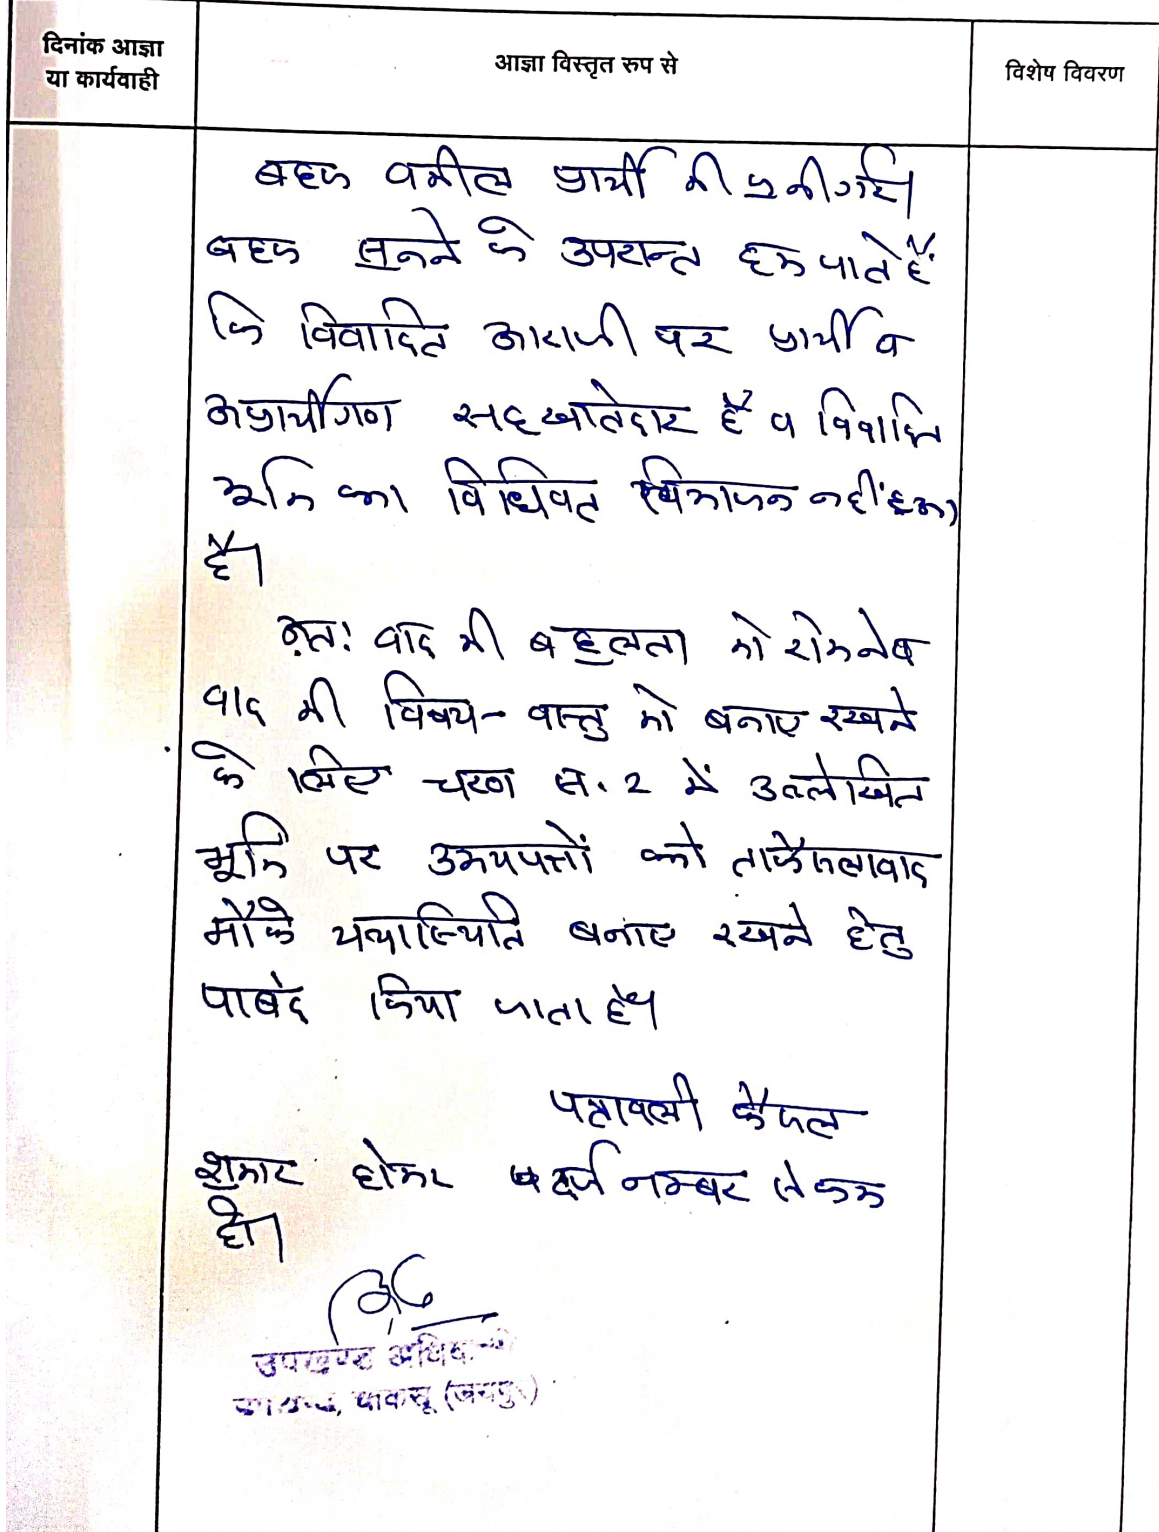 दिनांक आज्ञा
या कार्यवाही
आज्ञा विस्तृत रुप से
विशेष विवरण
बहस वकील प्रार्थी की सुनी गई।
बहस सुनने के उपरान्त हम पाते हैं
कि विवादित आराजी पर प्रार्थी व
अप्रार्थीगण सहखातेदार हैं व विवादित
भूमि का विधिवत विभाजन नहीं हुआ
है।
अतः वाद की बहुलता को रोकने व
वाद की विषय-वस्तु को बनाए रखने
के लिए चरण स. 2 में उल्लेखित
भूमि पर उभयपक्षों को ताफैसलावाद
मौके यथास्थिति बनाए रखने हेतु
पाबंद किया जाता है।
पत्रावली फैसल
शुमार होकर दर्ज नम्बर से कम
हो।
उपखण्ड अधिकारी
चाकसू (जयपुर)